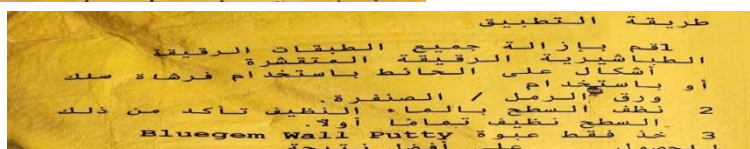 طريقة التطبيق
1قم بإزالة جميع الطبقات الرقيقة
الطباشيرية الرقيقة المتقشرة
أشكال على الحائط باستخدام فرشاة سلك
أو باستخدام
ورق الرمل / الصنفرة.
2 نظف السطح بالماء النظيف تأكد من ذلك
السطح نظيف تمامًا أولاً
3 خذ فقط عبوة Bluegem Wall Putty
للحصول على أفضل نتيجة